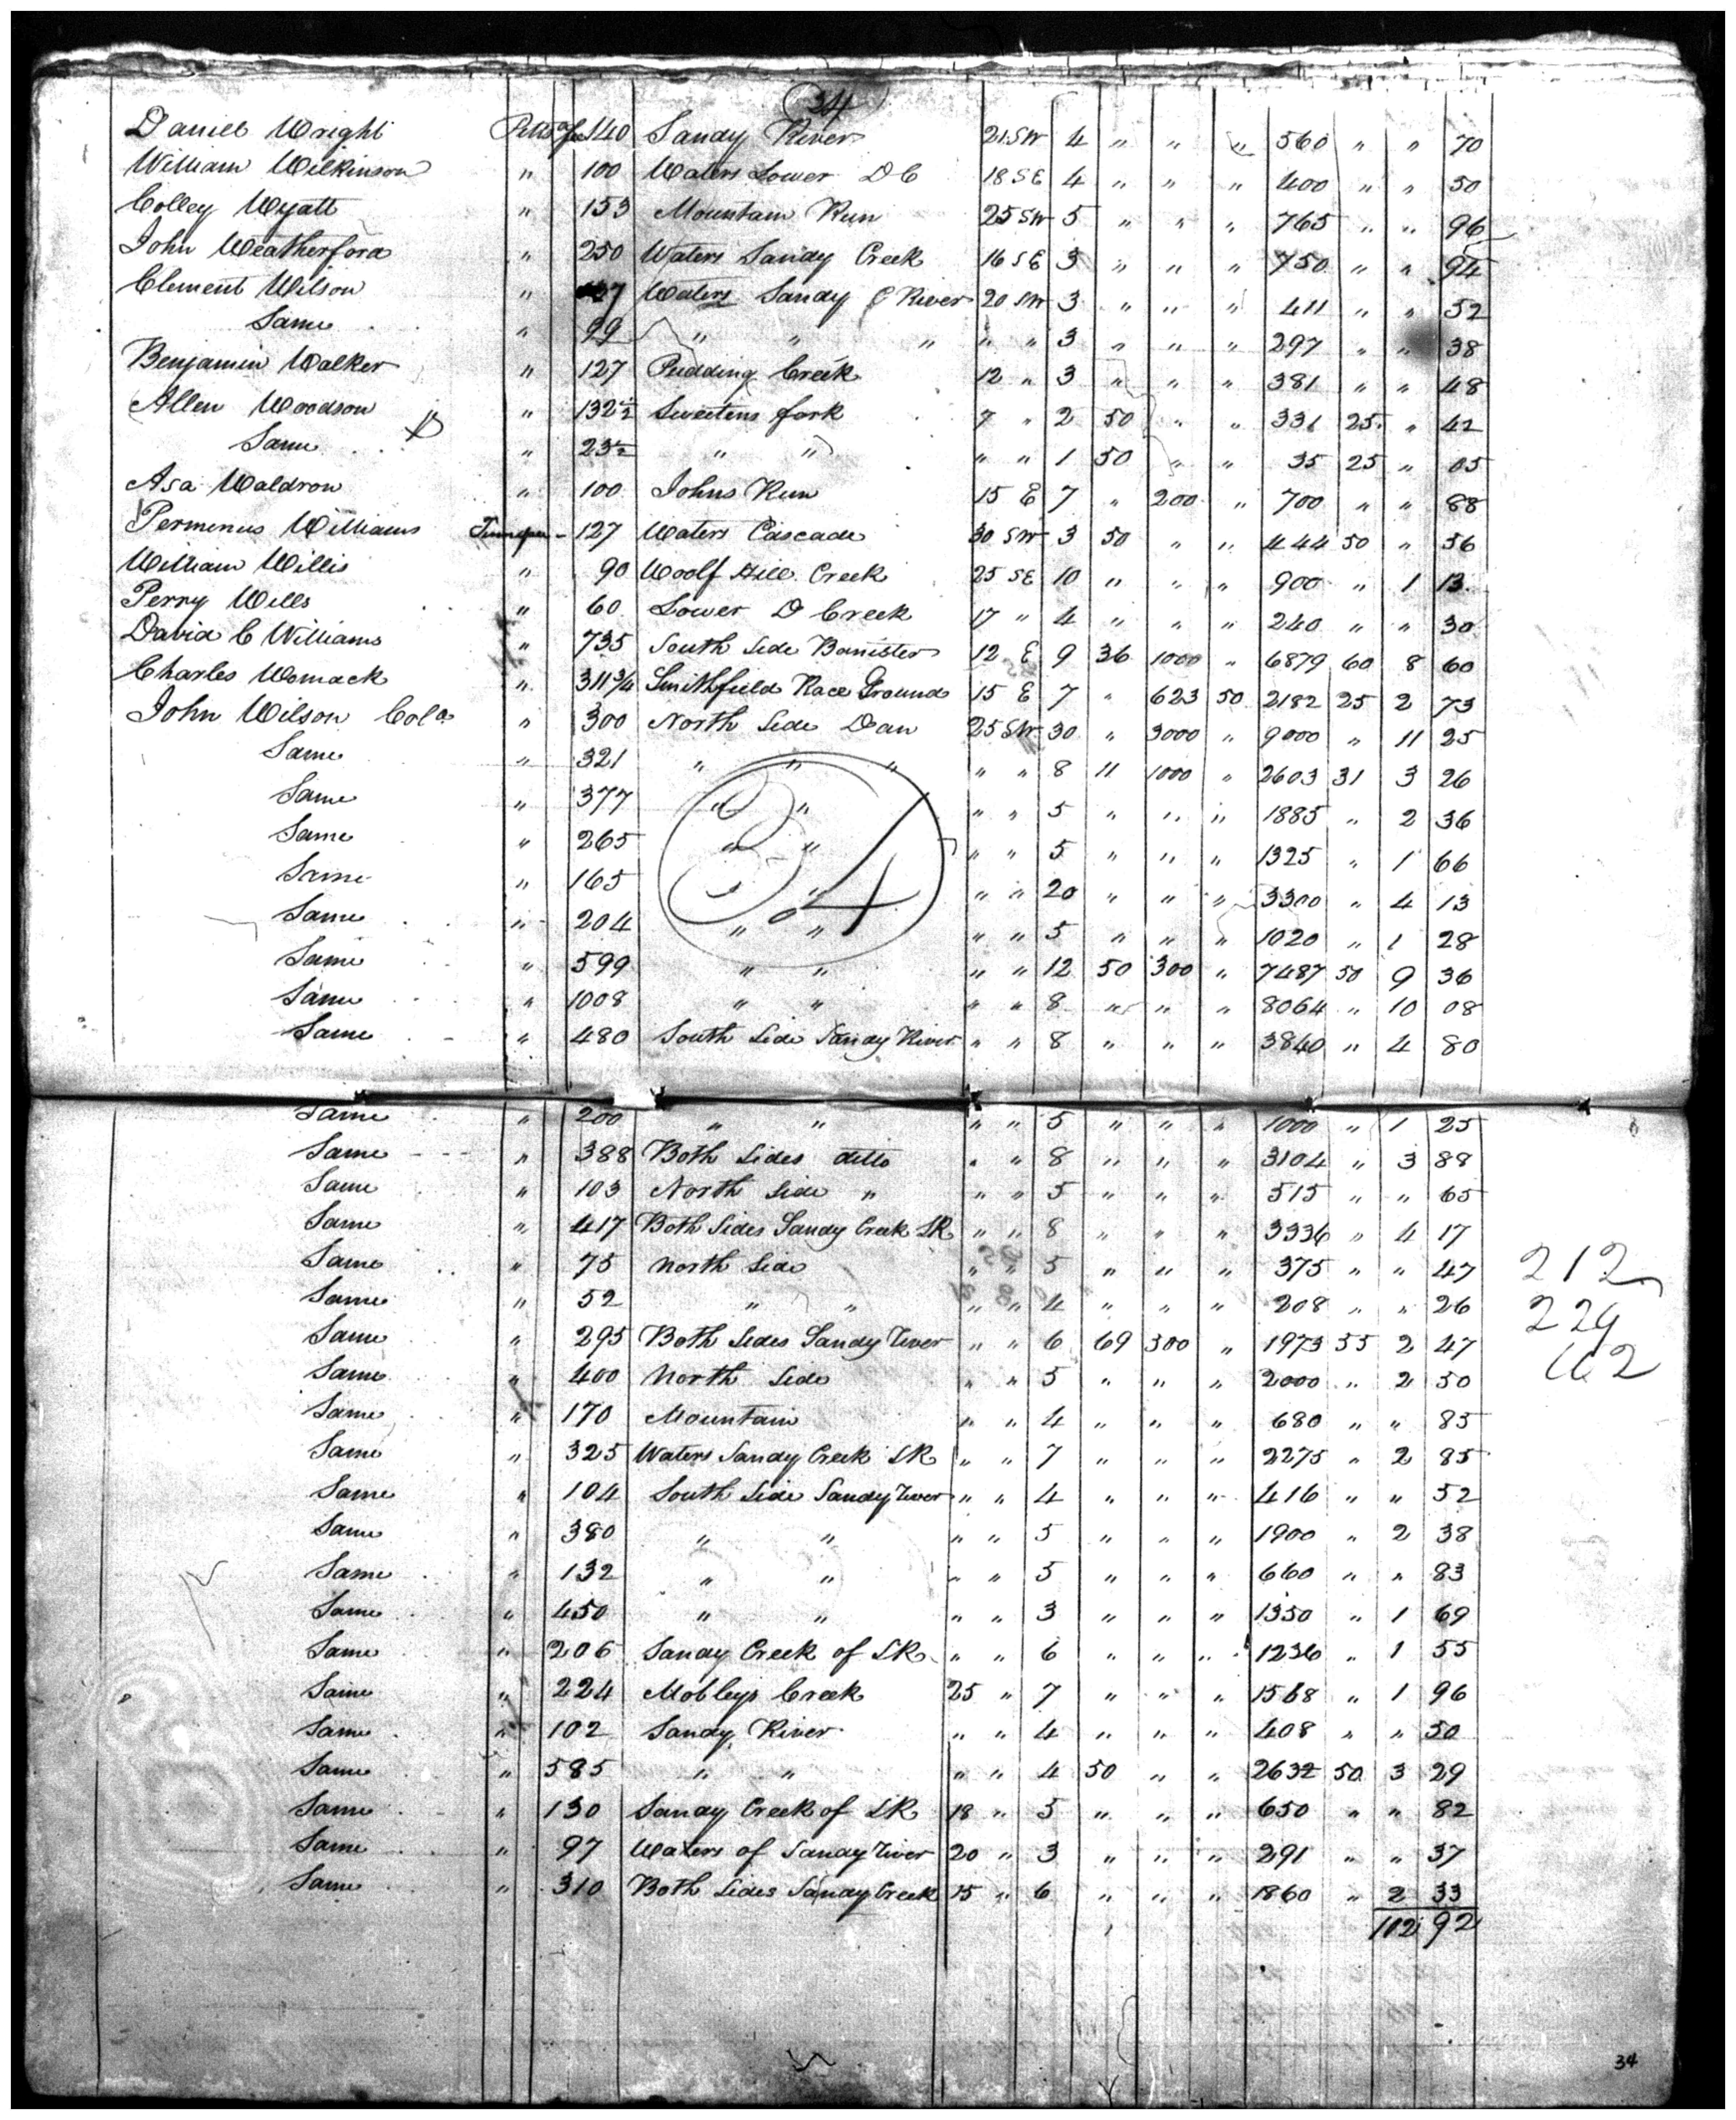 34
Daniel Wright Pittsa 140 Sandy River 21 SW 4 " " " 560 " " 70
William Wilkinson " 100 Waters Lower D C 18 SE 4 " " " 400 " " 50
Colley Wyatt " 153 Mountain Run 25 SW 5 " " " 765 " " 96
John Weatherford " 250 Waters Sandy Creek 16 SE 3 " " " 750 " " 94
Clement Wilson " 137 Waters Sandy C River 20 SW 3 " " " 411 " " 52
Same " 99 " " " " " 3 " " " 297 " " 38
Benjamin Walker " 127 Pudding Creek 12 " 3 " " " 381 " " 48
Allen Woodson " 132½ Sweetens fork 7 " 2 50 " " 331 25 " 42
Same " 23½ " " " " 1 50 " " 35 25 " 05
Asa Waldron " 100 Johns Run 15 E 7 " 200 " 700 " " 88
Permenus Williams 127 Waters Cascade 30 SW 3 50 " " 444 50 " 56
William Willis " 90 Woolf Hill Creek 25 SE 10 " " " 900 " 1 13
Perry Wills " 60 Lower D Creek 17 " 4 " " " 240 " " 30
David C Williams " 735 South Side Banister 12 E 9 36 1000 " 6879 60 8 60
Charles Womack " 311¾ Smithfield Race Ground 15 E 7 " 623 50 2182 25 2 73
John Wilson Colo " 300 North Side Dan 25 SW 30 " 3000 " 9000 " 11 25
Same " 321 " " " " " 8 11 1000 " 2603 31 3 26
Same " 377 " " " " 5 " " " 1885 " 2 36
Same " 265 " " " " 5 " " " 1325 " 1 66
34
Same " 165 " " " 20 " " " 3300 " 4 13
Same " 204 " " " " 5 " " " 1020 " 1 28
Same " 599 " " " " 12 50 300 " 7487 50 9 36
Same " 1008 " " " " 8 " " " 8064 " 10 08
Same " 480 South Side Sandy River " " 8 " " " 3840 " 4 80
Same " 200 " " " " 5 " " " 1000 " 1 25
Same " 388 Both Sides ditto " " 8 " " " 3104 " 3 88
Same " 103 North Side " " " 5 " " " 515 " " 65
Same " 417 Both Sides Sandy Creek SR " " 8 " " " 3336 " 4 17
Same " 75 North Side " " 5 " " " 375 " " 47
212
Same " 52 " " " " 4 " " " 208 " " 26
229
Same " 295 Both Sides Sandy River " " 6 69 300 " 1973 55 2 47
Same " 400 North Side " " 5 " " " 2000 " 2 50
Same " 170 Mountain " " 4 " " " 680 " " 85
Same " 325 Waters Sandy Creek SR " " 7 " " " 2275 " 2 85
Same " 104 South Side Sandy River " " 4 " " " 416 " " 52
Same " 380 " " " " 5 " " " 1900 " 2 38
Same " 132 " " " " 5 " " " 660 " " 83
Same " 450 " " " " 3 " " " 1350 " 1 69
Same " 206 Sandy Creek of SR " " 6 " " " 1236 " 1 55
Same " 224 Mobleys Creek 25 " 7 " " " 1568 " 1 96
Same " 102 Sandy River " " 4 " " " 408 " " 50
Same " 585 " " " " 4 50 " " 2632 50 3 29
Same " 130 Sandy Creek of SR 18 " 5 " " " 650 " " 82
Same " 97 Waters of Sandy River 20 " 3 " " " 291 " " 37
Same " 310 Both Sides Sandy Creek 15 " 6 " " " 1860 " 2 33
102 92
34